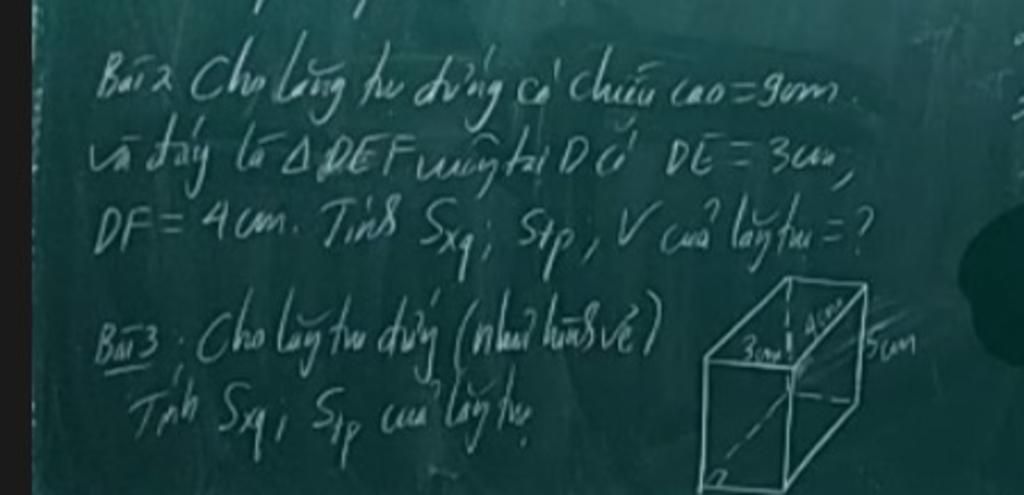 Bài 2 Cho lăng trụ đứng có chiều cao = 9cm
và đáy là Δ DEF vuông tại D có DE = 3cm,
DF = 4cm. Tính Sxq; Stp, V của lăng trụ = ?
Bài 3: Cho lăng trụ đứng (như hình vẽ)
Tính Sxq; Stp của lăng trụ
3cm
4cm
5cm